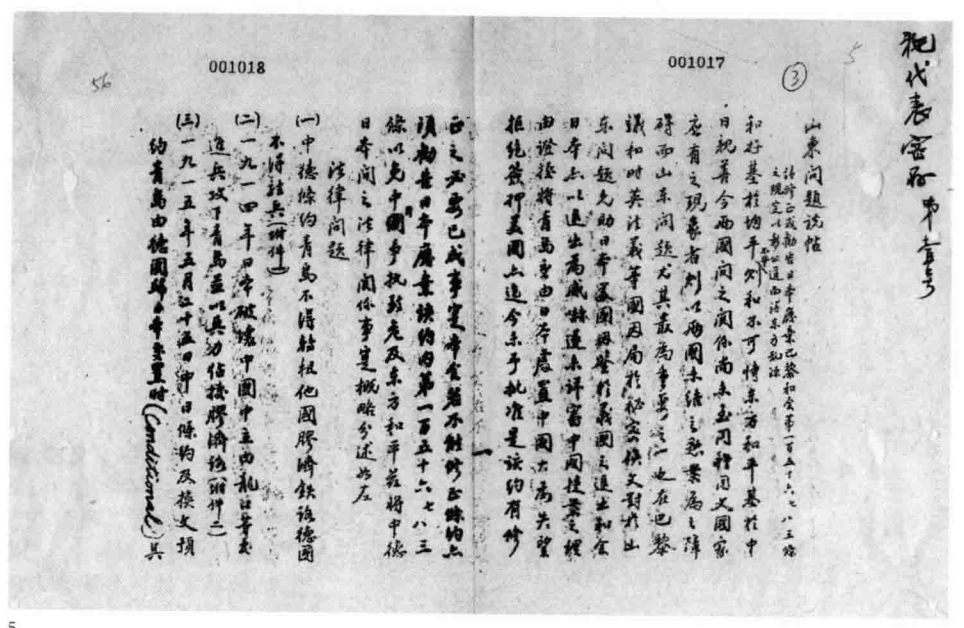 5
③
001017
山東問題說帖
請修正或勸告日本廢棄巴黎和會第一百五十六七八三條
之規定以彰公道而消東方亂源
和好基於均平不平則和不可恃東方和平基於中
日親善今兩國間之関係尚未至同種同文國家
應有之現象者則以兩國未結之懸案為之障
碍而山東問題尤其最為重要之一也在巴黎
議和時英法義等國因局於秘密換文對於山
東問題允助日本美國因鑒於義國之退出和會
日本亦以退出為威嚇遂未詳審中國提案之理
由證據將青島要由日本處置中國大為失望
拒絕簽押美國亦迄今未予批准是該約有修
001018
56
正之必要已成事實本會若不能修正條約亦
須勸告日本廢棄該約內第一百五十六七八三
條以免中國爭執致危及東方和平茲將中德
日本間之法律関係事實概略分述如左
法律問題
(一)中德條約青島不得轉租他國膠濟鉄路德國
不得駐兵(附件一)
(二)一九一四年日本破壞中國中立由龍口等處
進兵攻下青島並以兵力佔據膠濟路(附件二)
(三)一九一五年五月二十五日中日條約及換文預
約青島由德國歸日本處置時(Conditional)其
5